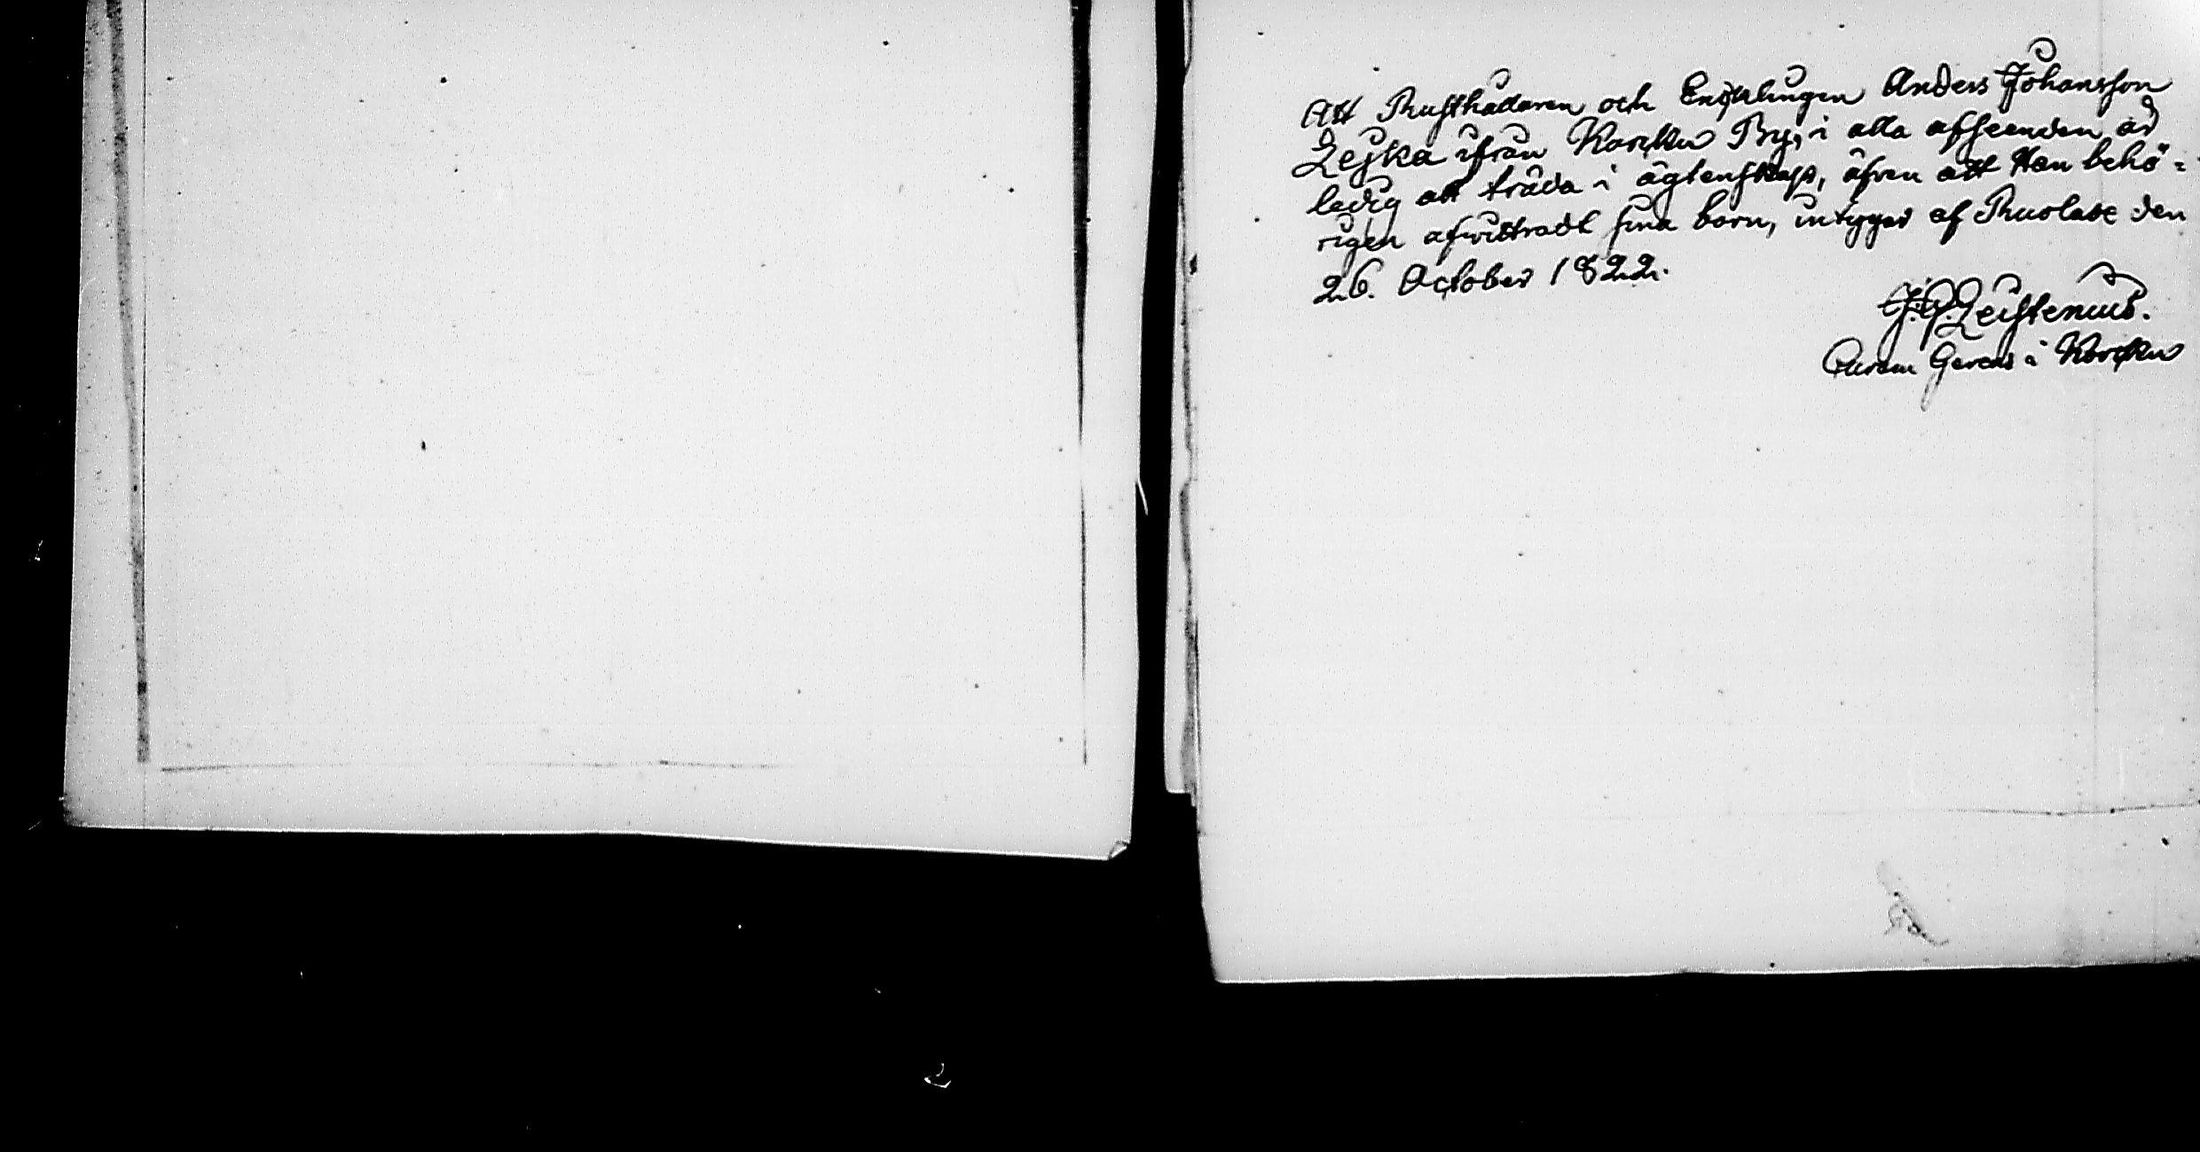 Att Rusthållaren och Enklingen Anders Johansson
Lejka ifrån Koriku By, i alla afseenden är
ledig att träda i ägtenskap, äfven att Han behö-
rigen afwittradt sina barn, intygar af Ruolax den
26. October 1822.
J. G. Leistenius.
Curam Gerens i Koriku